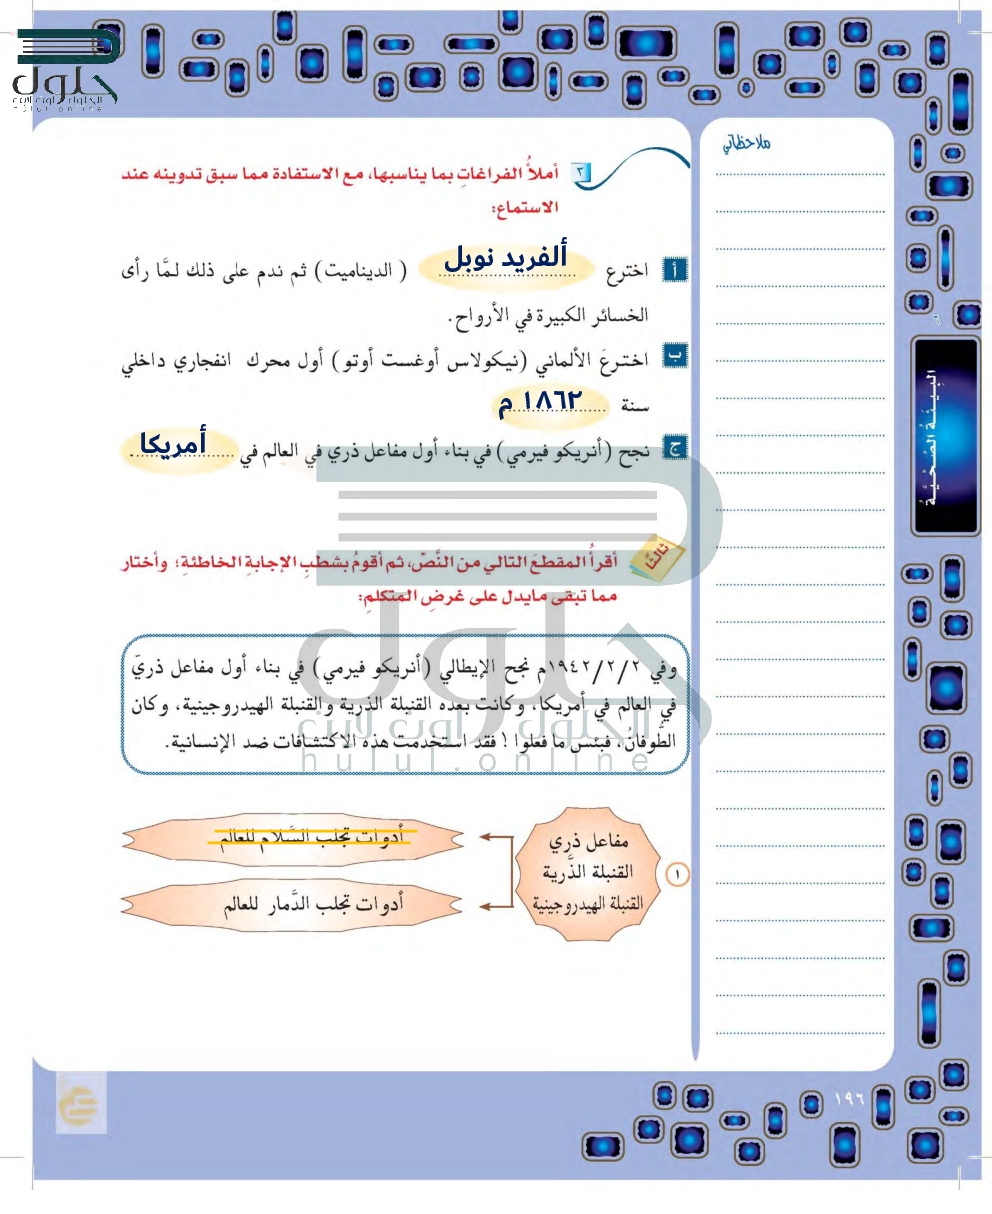 حلول
الحلول اون لاين
hulul.online
ملاحظاتي
٣ أملأُ الفراغاتِ بما يناسبها، مع الاستفادة مما سبق تدوينه عند
الاستماع:
أ اخترع ألفريد نوبل ( الديناميت) ثم ندم على ذلك لمَّا رأى
الخسائر الكبيرة في الأرواح.
ب اخترعَ الألماني (نيكولاس أوغست أوتو) أول محرك انفجاري داخلي
سنة ١٨٦٢ م
ج نجح (أنريكو فيرمي) في بناء أول مفاعل ذري في العالم في أمريكا.
ثالثًا أقرأُ المقطعَ التالي من النَّصّ، ثم أقومُ بشطبِ الإجابةِ الخاطئةِ؛ وأختار
مما تبقى مايدل على غرضِ المتكلمِ:
وفي ١٩٤٢/٢/٢م نجح الإيطالي (أنريكو فيرمي) في بناء أول مفاعل ذريّ
في العالم في أمريكا، وكانت بعده القنبلة الذرية والقنبلة الهيدروجينية، وكان
الطُّوفان، فبئس ما فعلوا ! فقد استخدمت هذه الاكتشافات ضد الإنسانية.
حلول
الحلول اون لاين
hulul.online
١
مفاعل ذري
القنبلة الذَّرية
القنبلة الهيدروجينية
أدوات تجلب السَّلام للعالم
أدوات تجلب الدَّمار للعالم
البيئة الصحية
١٩٦